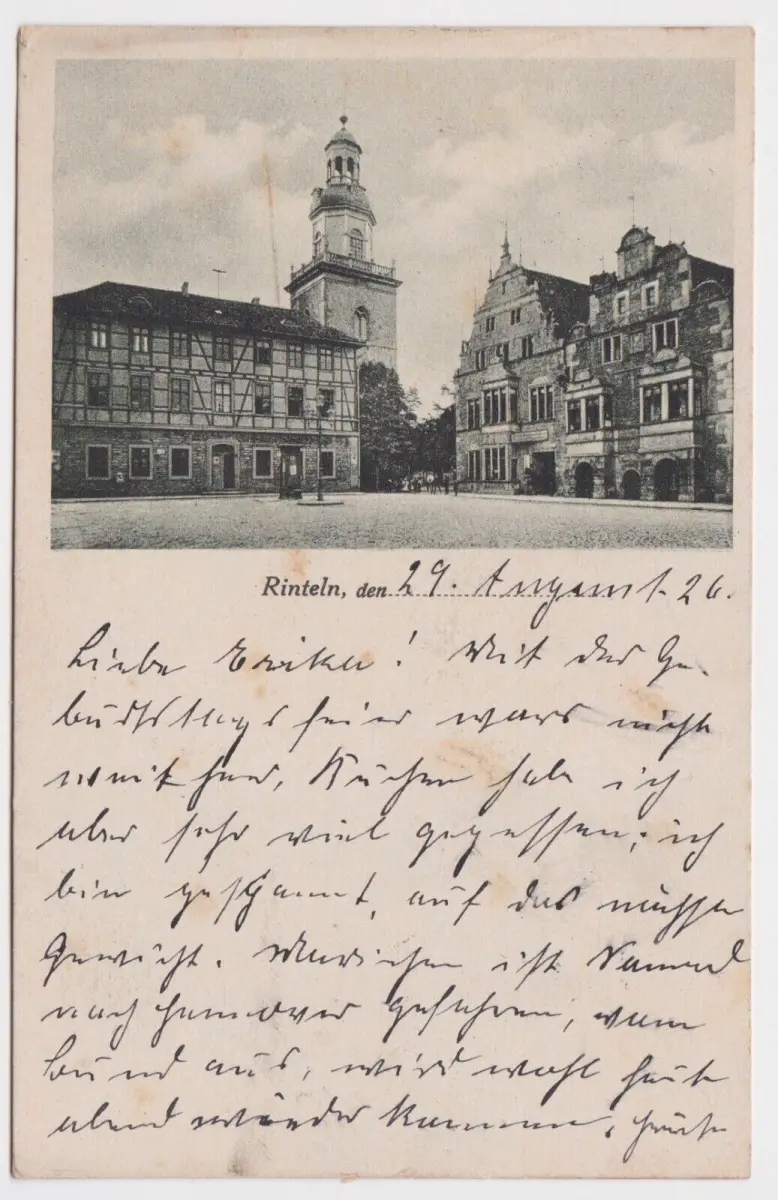 Rinteln, den 29. August 26.
Liebe Erika! Mit der Ge-
burtstagsfeier wars nicht
weit her, Kuchen habe ich
aber sehr viel gegessen; ich
bin gespannt, auf das nächste
Gewicht. Mariechen ist
nach Hannover gefahren, vom
Bund aus, wird wohl heute
abend wieder kommen, heute